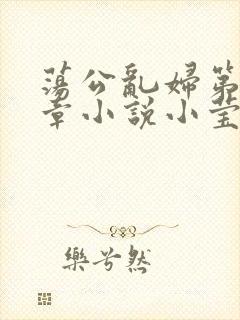 蕩公亂婦第
章小說小莹
樂兮然